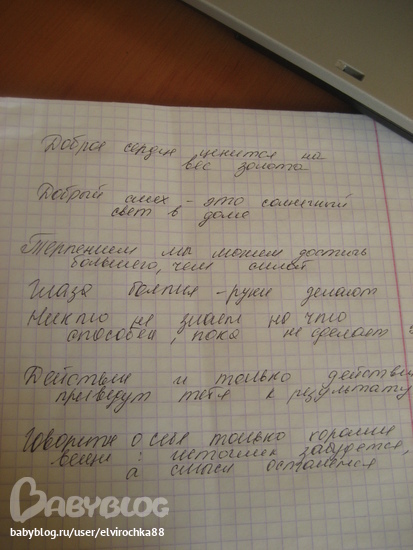 Доброе сердце ценится на
вес золота
Добрый смех - это солнечный
свет в доме
Терпением мы можем достичь
большего, чем силой
Глаза боятся - руки делают
Никто не знает на что
способен, пока не сделает
Действия и только действия
приведут тебя к результату
Говорите о себе только хорошие
вещи: источник забудется,
а смысл останется
BABYBLOG
babyblog.ru/user/elvirochka88